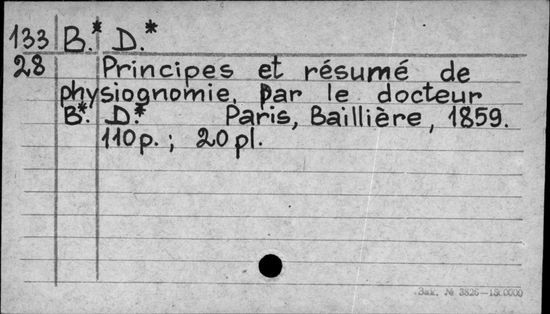 133 B.* D.*
28 Principes et résumé de
physiognomie, par le docteur
B*. D.* Paris, Baillière, 1859.
110 p. ; 20 pl.
Зак. № 3826—